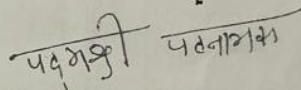 पदमश्री पटनायक